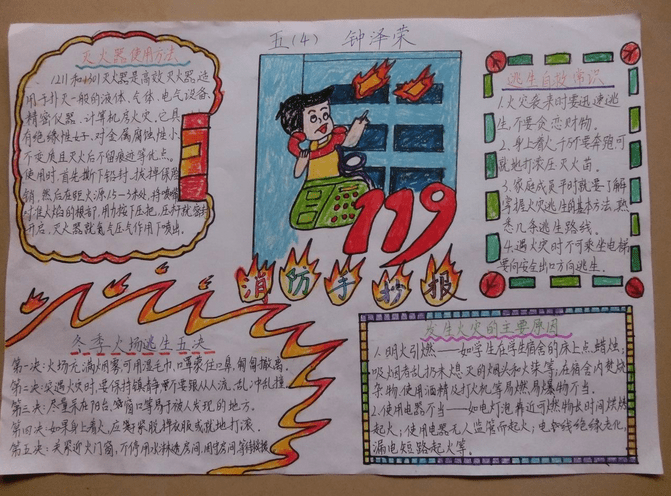 五(4) 钟泽荣
灭火器使用方法
1211和1301灭火器是高效灭火器,适
用于扑灭一般的液体、气体、电气设备、
精密仪器、计算机房火灾。它具
有绝缘性好,对金属腐蚀性小,
不变质且灭火后不留痕迹等优点。
使用时,首先撕下铅封,拔掉保险
销,然后在距火源1.5—3米处,将喷嘴
对准火焰的根部,用力按下压把,压杆就
开启,灭火器就氮气压气作用下喷出。
119
消防手抄报
逃生自救常识
1.火灾袭来时要迅速逃
生,不要贪恋财物。
2.身上着火,千万不要奔跑,可
就地打滚压灭火苗。
3.家庭成员平时就要了解
掌握火灾逃生的基本方法,熟
悉几条逃生路线。
4.遇火灾时不可乘坐电梯,
要向安全出口方向逃生。
冬季火场逃生五决
第一决:火场充满烟雾,可用湿毛巾、口罩捂住口鼻,匍匐撤离。
第二决:突遇火灾时,要保持镇静,千万不要跟从人流、乱冲乱撞。
第三决:尽量呆在阳台、窗口等易于被人发现的地方。
第四决:如果身上着火,应赶紧脱掉衣服或就地打滚。
第五决:关紧近火门窗,不停用水淋透房间,固守房间等待救援。
发生火灾的主要原因
1.明火引燃——如学生在学生宿舍的床上点蜡烛;
吸烟者乱扔未熄灭的烟头和火柴等,在宿舍内焚烧
杂物,使用酒精及打火机等易燃易爆物不当。
2.使用电器不当——如电灯泡靠近可燃物长时间烘烤
起火;使用电器无人监管而起火;电线老化,
漏电短路起火等。